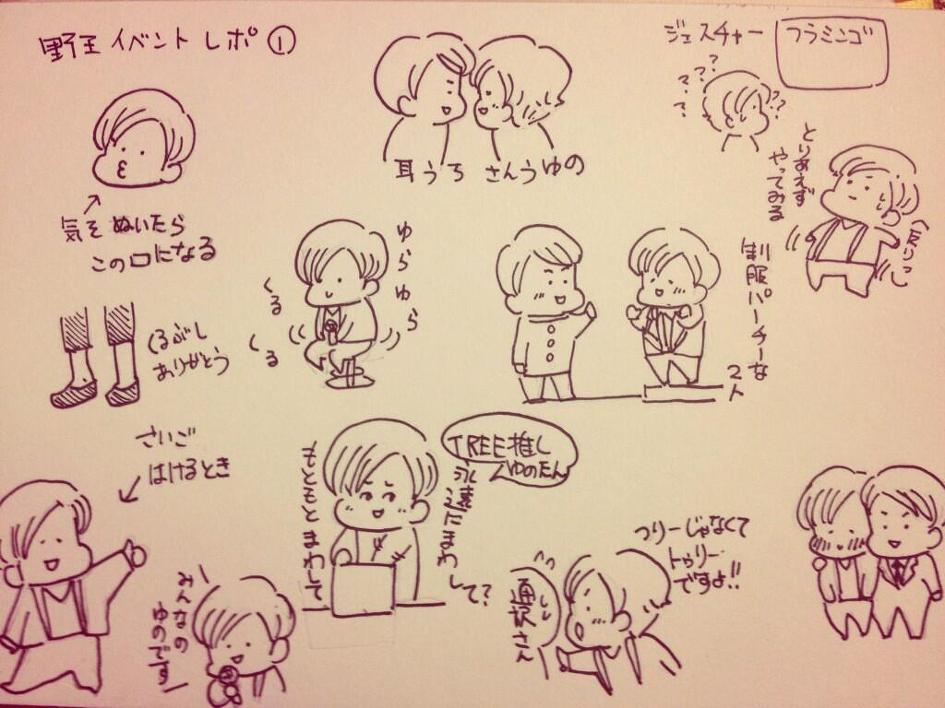 野王 イベント レポ ①
ジェスチャー
フラミンゴ
???
???
??
耳うち さんうゆの
とりあえず
やってみる
気を ぬいたら
この口になる
ゆらゆら
くる
くる
制服パーチーな
2人
くるぶし
ありがとう
さいご
はけるとき
TREE推し
ゆのたん
もともとまわして
永遠にまわして?
つりーじゃなくて
トゥリー
ですよ!!
通訳さん
みんなの
ゆのです